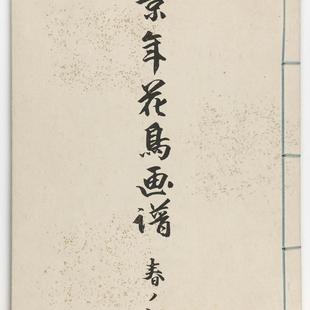 景年花鳥画譜 春ノ